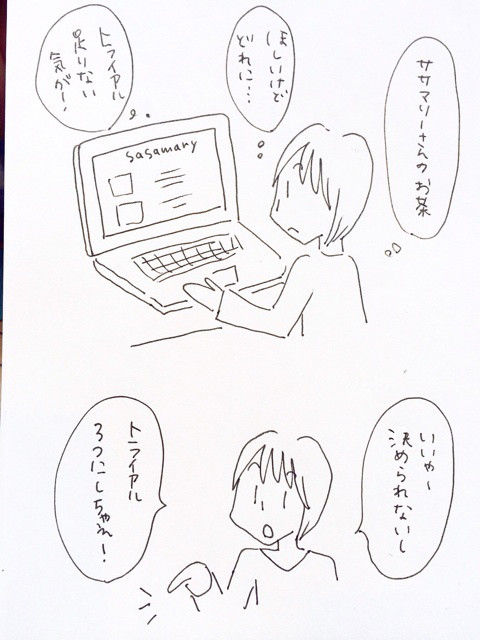 ササマリーさんのお茶
ほしいけど
どれに…
トライアル
足りない
気が!
sasamary
いいや〜
決められないし
トライアル
3つにしちゃえ!